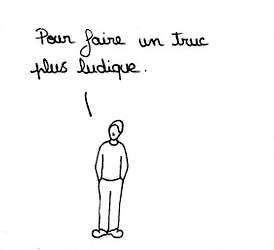 Pour faire un truc
plus ludique.